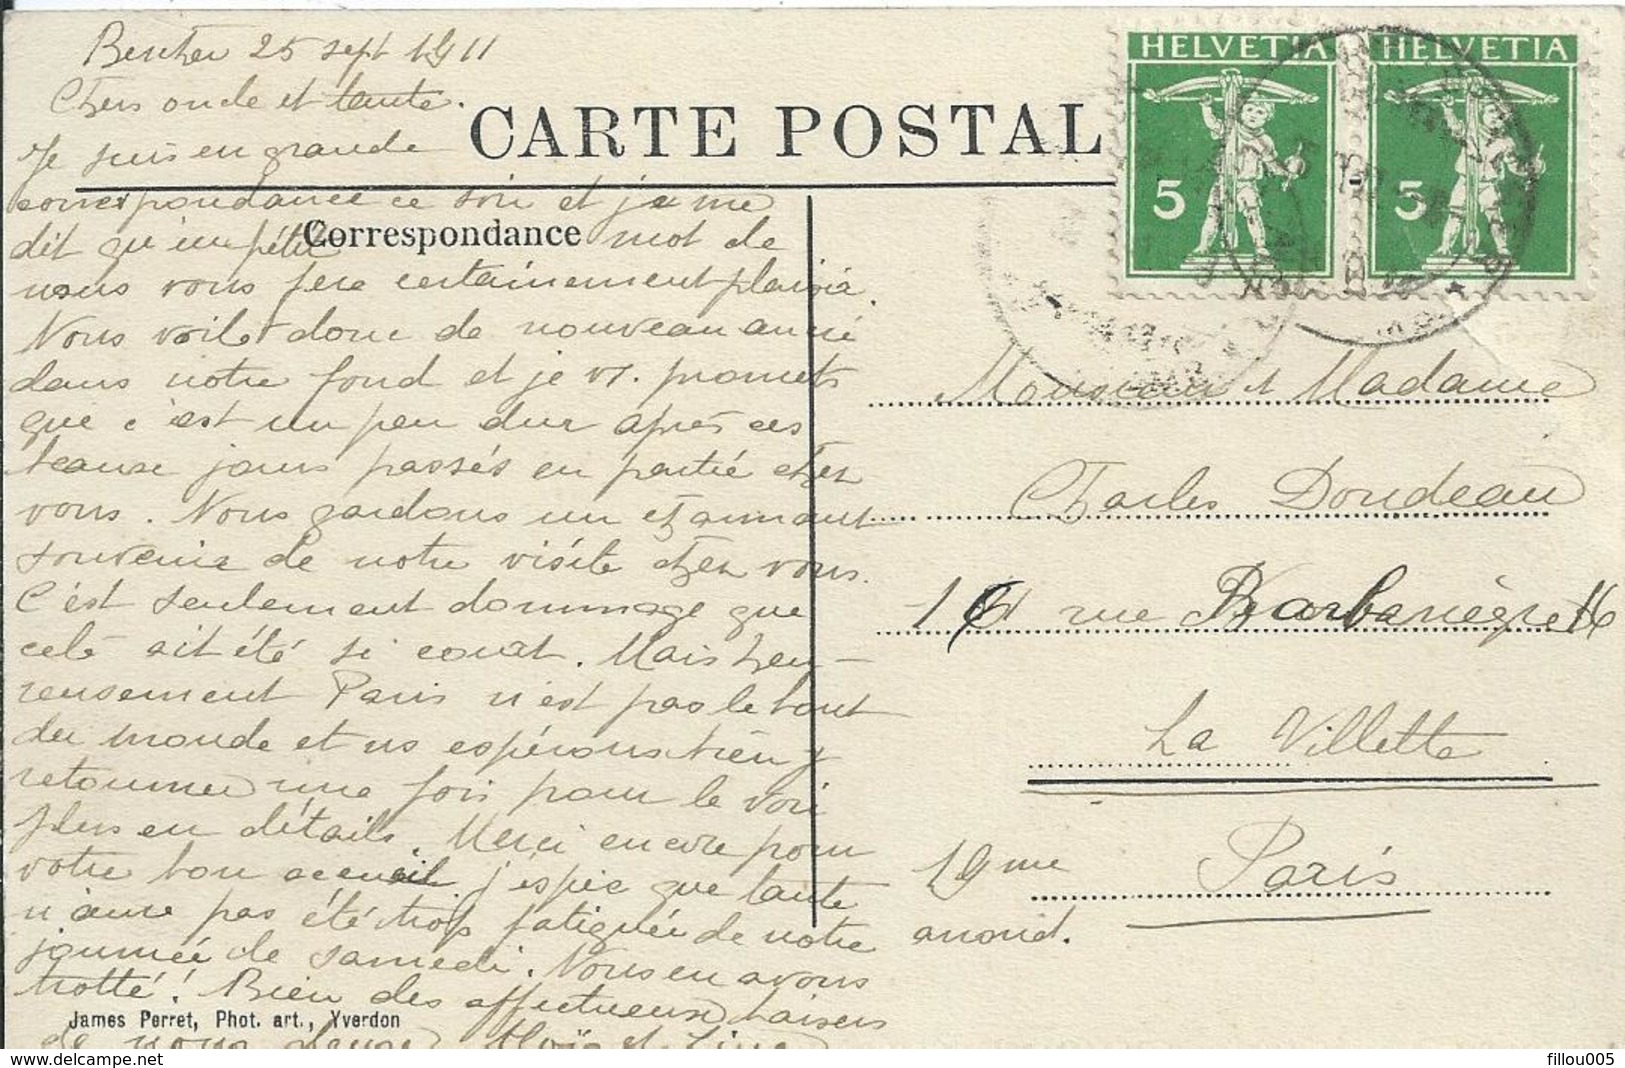 Bercher 25 sept 1911
Chers oncle et tante.
Je suis en grande
correspondance ce soir et je me
dit qu'un pétit mot de
nous vous fera certainement plaisir.
Nous voilà donc de nouveau arrivé
dans notre fond et je vs. promets
que c'est un peu dur après ces
beaux jours passés en partie chez
vous. Nous gardons un charmant
souvenir de notre visite chez vous.
C'est seulement dommage que
cela ait été si court. Mais heu-
reusement Paris n'est pas le bout
du monde et ns espérons bien y
retourner une fois pour le voir
plus en détails. Merci encore pour
votre bon accueil j'éspère que tante
n'aura pas été trop fatiguée de notre
journée de samedi. Nous en avons
trotté! Bien des affectueux baisers
de nous deux
CARTE POSTAL
Correspondance
HELVETIA
5
HELVETIA
5
Monsieur et Madame
Charles Doudeau
rue Barbanègre 16
La Villette
Paris
19me
arrond.
James Perret, Phot. art., Yverdon
fillou005